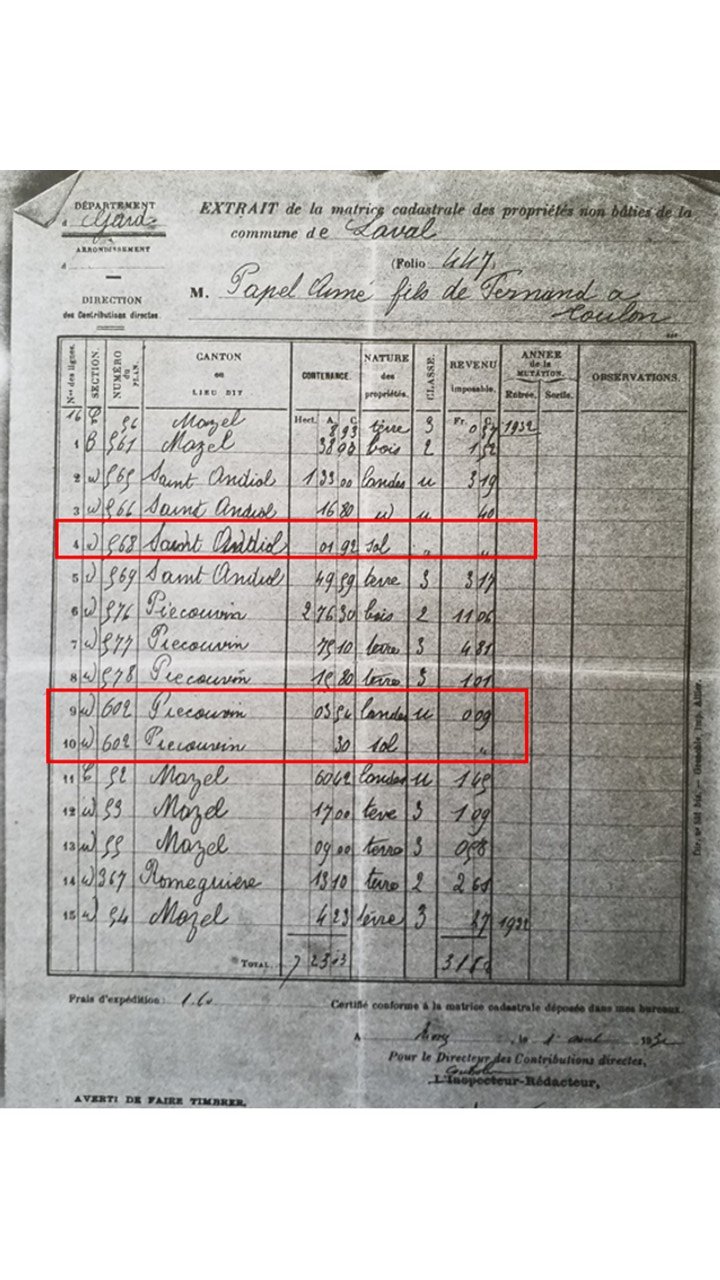 DÉPARTEMENT
d Gard
ARRONDISSEMENT
d
DIRECTION
des Contributions directes.
EXTRAIT de la matrice cadastrale des propriétés non bâties de la
commune de Laval
(Folio 447.
M. Papel Aimé fils de Fernand a
Toulon
Nos des lignes. SECTION. NUMÉRO du PLAN. CANTON ou LIEU DIT CONTENANCE. NATURE des propriétés. CLASSE. REVENU imposable. ANNÉE de la MUTATION. Entrée. Sortie. OBSERVATIONS.
Hect. A. C. Fr. C.
16 C 56 Mazel 8 93 terre 3 0 57 1932
1 B 561 Mazel 38 90 bois 2 1 52
2 id 565 Saint Andiol 1 33 00 landes u 3 19
3 id 566 Saint Andiol 16 80 id u 40
4 id 568 Saint Andiol 01 92 sol " "
5 id 569 Saint Andiol 49 59 terre 3 3 17
6 id 576 Piecouvin 2 76 30 bois 2 11 06
7 id 577 Piecouvin 75 10 terre 3 4 81
8 id 578 Piecouvin 15 80 terre 3 1 01
9 id 602 Piecouvin 03 54 landes u 0 09
10 id 602 Piecouvin 30 sol "
11 C 52 Mazel 60 42 landes u 1 45
12 id 53 Mazel 17 00 terre 3 1 09
13 id 55 Mazel 09 00 terre 3 0 58
14 id 367 Romeguiere 13 10 terre 2 2 61
15 id 54 Mazel 4 23 terre 3 27 1932
TOTAL 7 23 13 31 82
Frais d'expédition: 1.60
Certifié conforme à la matrice cadastrale déposée dans mes bureaux.
A , le 1 avril 193
Pour le Directeur des Contributions directes,
L'Inspecteur-Rédacteur,
AVERTI DE FAIRE TIMBRER.